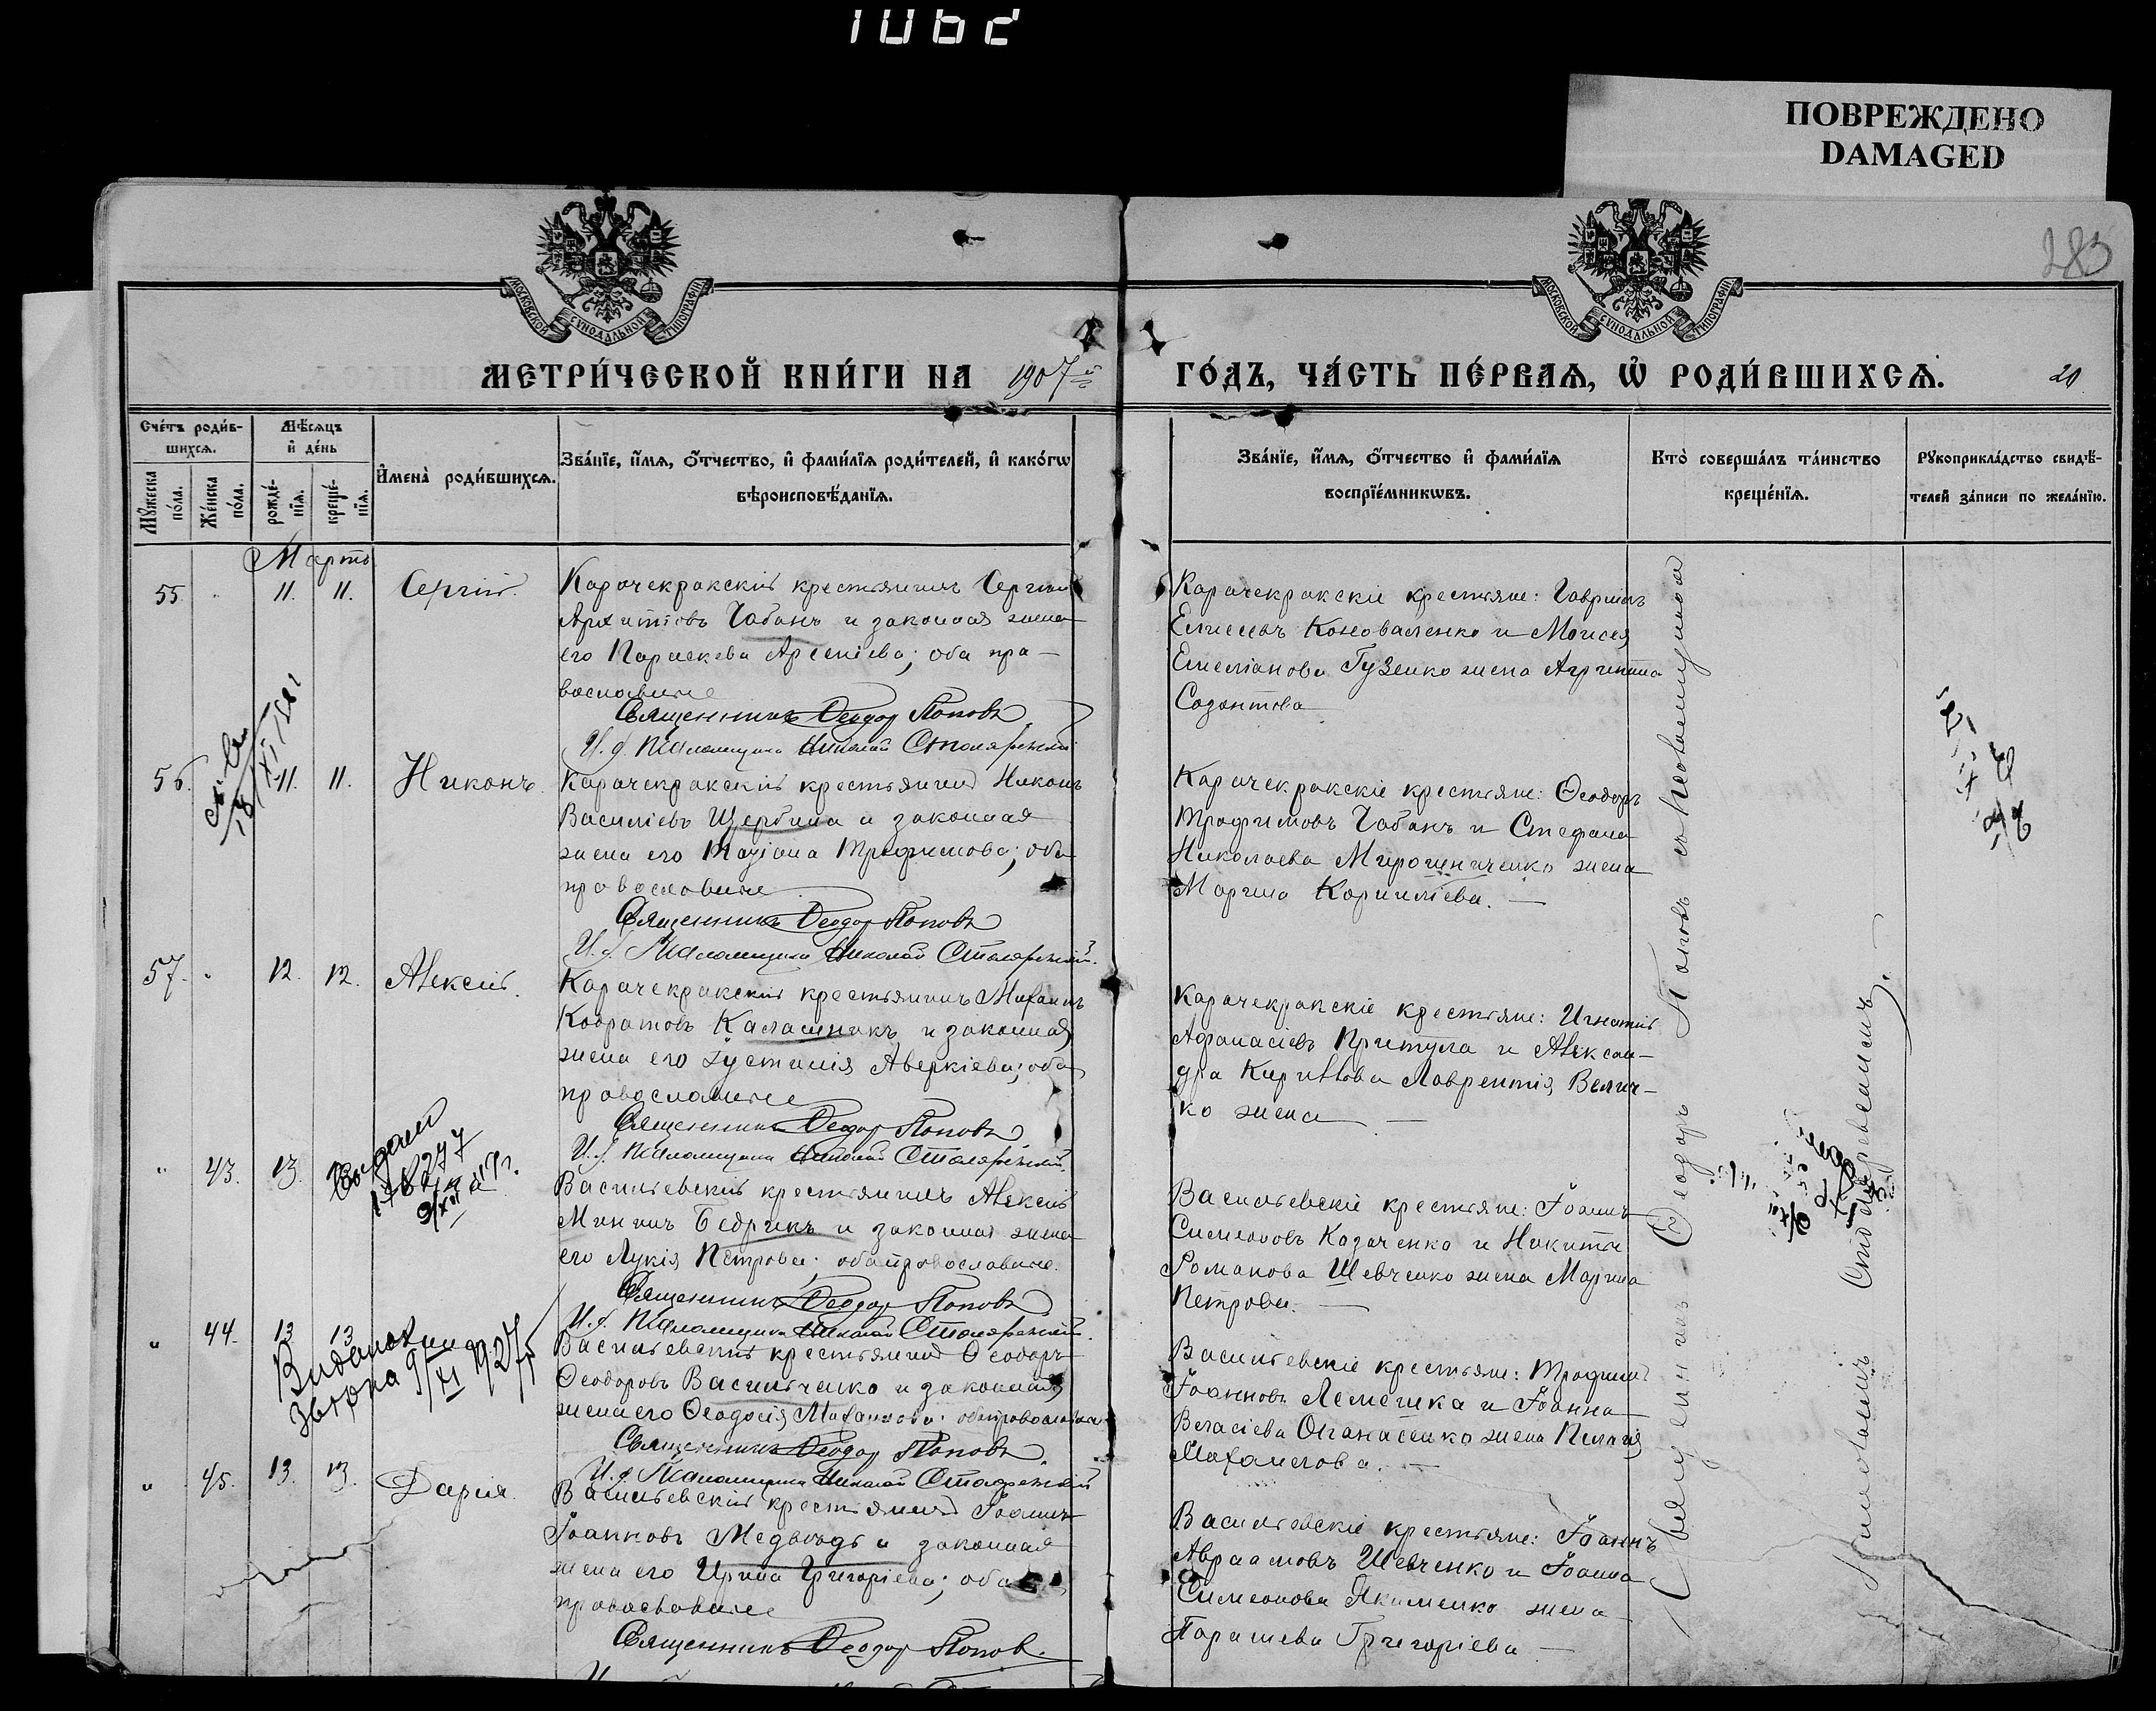 1062
ПОВРЕЖДЕНО
DAMAGED
МОСКОВСКОЙ СѴНОДАЛЬНОЙ ТИПОГРАФІИ
МОСКОВСКОЙ СѴНОДАЛЬНОЙ ТИПОГРАФІИ
283
МЕТРИ́ЧЕСКОЙ КНИ́ГИ НА 1907й
ГО́ДЪ, ЧА́СТЬ ПЕ́РВАѦ, Ѡ҆ РОДИ́ВШИХСѦ. 20
Сче́тъ роди́в-
шихсѧ.
Мѣ́сѧцъ
и҆ де́нь
Мꙋ́жеска по́ла.
Же́нска по́ла.
рожде́-нїѧ.
креще́-нїѧ.
И҆мена̀ роди́вшихсѧ.
Зва́нїе, и҆́мѧ, ѻ҆́тчество, и҆ фами́лїѧ роди́телей, и҆ како́гѡ
вѣроисповѣ́данїѧ.
Зва́нїе, и҆́мѧ, ѻ҆́тчество и҆ фами́лїѧ
воспрїе́мникѡвъ.
Кто̀ соверша́лъ та́инство
креще́нїѧ.
Рꙋкоприкла́дство свидѣ́-
телей за́писи по жела́нїю.
Мартъ
55. " 11. 11. Сергій.
Карачекракскій крестьянинъ Сергій
Архиповъ Чабанъ и законная жена
его Параскева Арсеніева; оба пра-
вославные
Священникъ Ѳеодор Поповъ
И. д. Псаломщика Николай Столяревскій
Карачекракскіе крестьяне: Гавріилъ
Елисеевъ Коноваленко и Моисея
Емеліанова Гузенко жена Агрипина
Созонтова
56. 11. 11. Никонъ.
18/XI 1981
Карачекракскій крестьянинъ Никонъ
Василіевъ Щербина и законная
жена его Татіана Трофимова; оба
православные
Священникъ Ѳеодор Поповъ
И. д. Псаломщика Николай Столяревскій.
Карачекракскіе крестьяне: Ѳеодоръ
Трофимовъ Чабанъ и Стефана
Николаева Мирошниченко жена
Марина Корниліева.
57. " 12. 12. Алексій.
Карачекракскій крестьянинъ Михаилъ
Кодратовъ Калашникъ и законная
жена его Іустинія Аверкіева; оба
православные
Священникъ Ѳеодор Поповъ
И. д. Псаломщика Николай Столяревскій.
Карачекракскіе крестьяне: Игнатій
Афанасіевъ Притула и Алексан-
дра Кириллова Лаврентія Велич-
ко жена
" 43. 13.
Васильевскій крестьянинъ Алексій
Мининъ Бедрикъ и законная жена
его Лукія Петрова; оба православные.
Священникъ Ѳеодор Поповъ
И. д. Псаломщика Николай Столяревскій.
Васильевскіе крестьяне: Іоаннъ
Симеоновъ Козаченко и Никиты
Романова Шевченко жена Марина
Петрова.
" 44. 13 13
9/XI 1927р
Васильевскій крестьянинъ Ѳеодоръ
Ѳеодоровъ Васильченко и законная
жена его Ѳеодосія Михаилова; оба православные
Священникъ Ѳеодор Поповъ.
И. д. Псаломщика Николай Столяревскій
Васильевскіе крестьяне: Трофимъ
Іоанновъ Лемешка и Іоанна
Власіева Опанасенко жена Пелагія
Михаилова.
" 45. 13. 13. Дарія.
Васильевскій крестьянинъ Іоаннъ
Іоанновъ Медвѣдь и законная
жена его Ирина Григоріева; оба
православные
Священникъ Ѳеодор Попов.
Васильевскіе крестьяне: Іоаннъ
Авраамовъ Шевченко и Іоанна
Симеонова Якименко жена
Параскева Григоріева
Священникъ Ѳеодоръ Поповъ съ псаломщикомъ
Николаемъ Столяревскимъ.